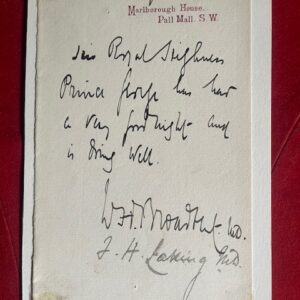 Marlborough House.
Pall Mall. S.W.
His Royal Highness
Prince George has had
a very good night and
is doing well.
W.H. Broadbent. M.D.
F. H. Laking M.D.